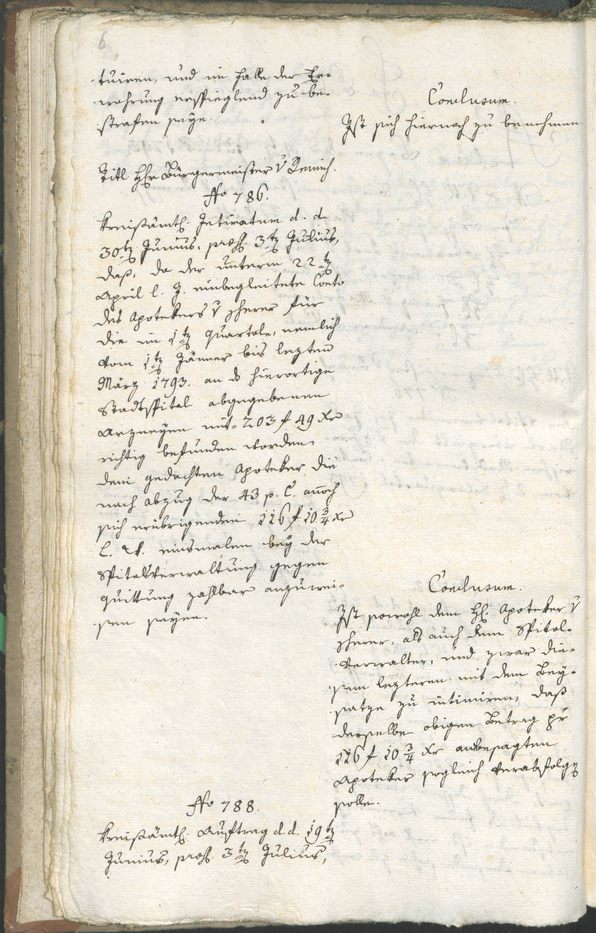 6.
tuiren, und im Falle der Er-
nahrung
strafen seye.
Conclusum.
Ist sich hiernach zu benehmen.
Titl H: Hr Bürgermeister v
No 786.
Kreisämtl: Intimatum d. d.
30ten Junius, praes. 3ten Julius,
daß, da der unterm 22ten
April l. J. einbegleitete Conto
des Apothekers v Scherer für
die im 1ten Quartale, nemlich
vom 1ten Jänner bis lezten
März 1793. an das hierortige
Stadtspital abgegebenen
Arzneyen mit 203 f 49 xr
richtig befunden worden,
dem gedachten Apoteker die
nach abzug der 43 p. C. annoch
sich erübrigenden 116 f 10 3/4 xr
einsmalen bey der
Spitalsverwaltung gegen
Quittung zahlbar anzuwei-
sen seyen.
Conclusum.
Ist sowohl dem H: Apoteker v
Scherer, als auch dem Spital-
Verwalter, und zwar die-
sem lezteren mit dem Bey-
satze zu intimiren, daß
derselbe obigen Betrag pr
116 f 10 3/4 xr anbesagten
Apoteker sogleich verabfolgen
solle.
No 788.
Kreisämtl: Auftrag d. d. 19ten
Junius, praes. 3ten Julius,